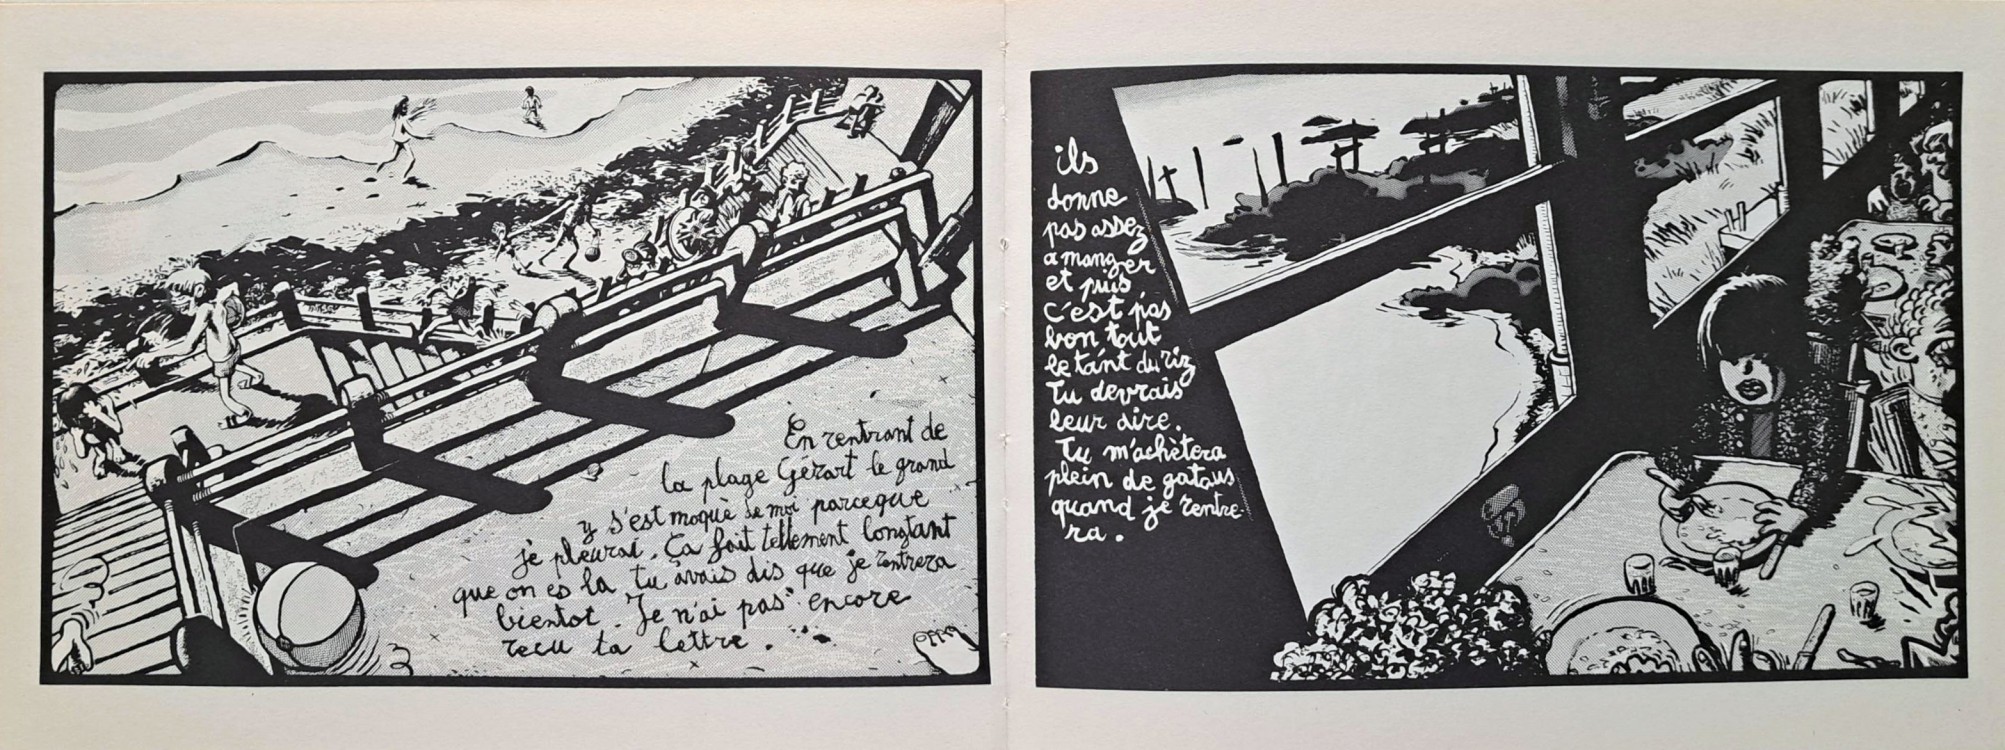 En rentrant de
la plage Gérart le grand
y s'est moquè de moi parceque
je pleurai. Ça fait tellement longtant
que on ès la tu avais dis que je rentrera
bientot. Je n'ai pas encore
recu ta lettre.
ils
donne
pas assez
a manger
et puis
c'est pas
bon tout
le tant du riz
Tu devrais
leur dire.
Tu m'achètera
plein de gataus
quand je rentre-
ra.